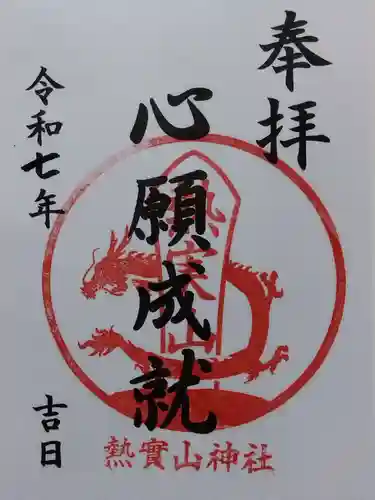 奉拝
心願成就
熱實山
令和七年 吉日
熱實山神社